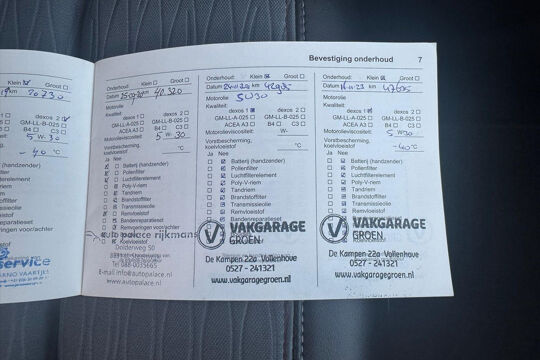 Bevestiging onderhoud 7
Klein ☑ Groot ☐
km 20730
dexos 2 ☑
GM-LL-B-025 ☐
B4 ☐ C3 ☐
5 W 30
-40 °C
service
Onderhoud: Klein ☑ Groot ☐
Datum km 40.320
Motorolie
Kwaliteit:
dexos 1 ☐ dexos 2 ☑
GM-LL-A-025 ☐ GM-LL-B-025 ☐
ACEA A3 ☐ B4 ☐ C3 ☐
Motorolieviscositeit: 5 W 30
Vorstbescherming,
koelvloeistof °C
Ja Nee
Batterij (handzender)
Pollenfilter
Luchtfilterelement
Poly-V-riem
Tandriem
Brandstoffilter
Transmissieolie
Remvloeistof
Bandenreparatieset
Remgeringen voor/achter
auto palace rijkmans
Koelvloeistof
Tel
E-mail info@autopalace.nl
www.autopalace.nl
Onderhoud: Klein ☑ Groot ☐
Datum km
Motorolie 5W30
Kwaliteit:
dexos 1 ☐ dexos 2 ☑
GM-LL-A-025 ☐ GM-LL-B-025 ☐
ACEA A3 ☐ B4 ☐ C3 ☐
Motorolieviscositeit: W-
Vorstbescherming,
koelvloeistof °C
Ja Nee
Batterij (handzender)
Pollenfilter
Luchtfilterelement
Poly-V-riem
Tandriem
Brandstoffilter
Transmissieolie
Remvloeistof
Bandenreparatieset
VAKGARAGE
GROEN
De Kampen 22a Vollenhove
0527 - 241321
www.vakgaragegroen.nl
Onderhoud: Klein ☑ Groot ☐
Datum km
Motorolie
Kwaliteit:
dexos 1 ☐ dexos 2 ☑
GM-LL-A-025 ☐ GM-LL-B-025 ☐
ACEA A3 ☐ B4 ☐ C3 ☐
Motorolieviscositeit: 5 W 30
Vorstbescherming,
koelvloeistof -40 °C
Ja Nee
Batterij (handzender)
Pollenfilter
Luchtfilterelement
Poly-V-riem
Tandriem
Brandstoffilter
Transmissieolie
Remvloeistof
Bandenreparatieset
VAKGARAGE
GROEN
De Kampen 22a Vollenhove
0527 - 241321
www.vakgaragegroen.nl